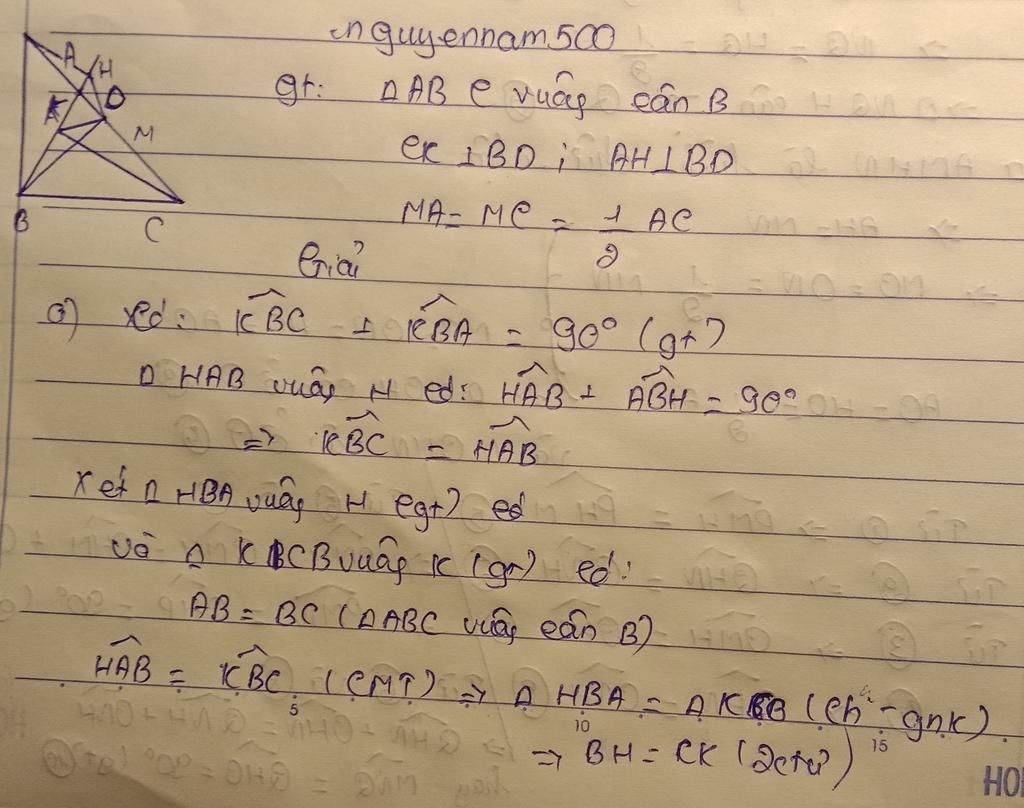 nguyennam500
A H
K D
M
B
C
gt: ΔABC vuông cân B
CK ⊥ BD ; AH ⊥ BD
MA = MC = 1/2 AC
Giải
a) Có: \widehat{KBC} + \widehat{KBA} = 90° (gt)
Δ HAB vuông H có: \widehat{HAB} + \widehat{ABH} = 90°
=> \widehat{KBC} = \widehat{HAB}
Xét Δ HBA vuông H (gt) có
và Δ KCB vuông K (gt) có:
AB = BC (ΔABC vuông cân B)
\widehat{HAB} = \widehat{KBC} (CMT) => Δ HBA = Δ KCB (ch - gnk)
5 10 15
=> BH = CK (2ctư)